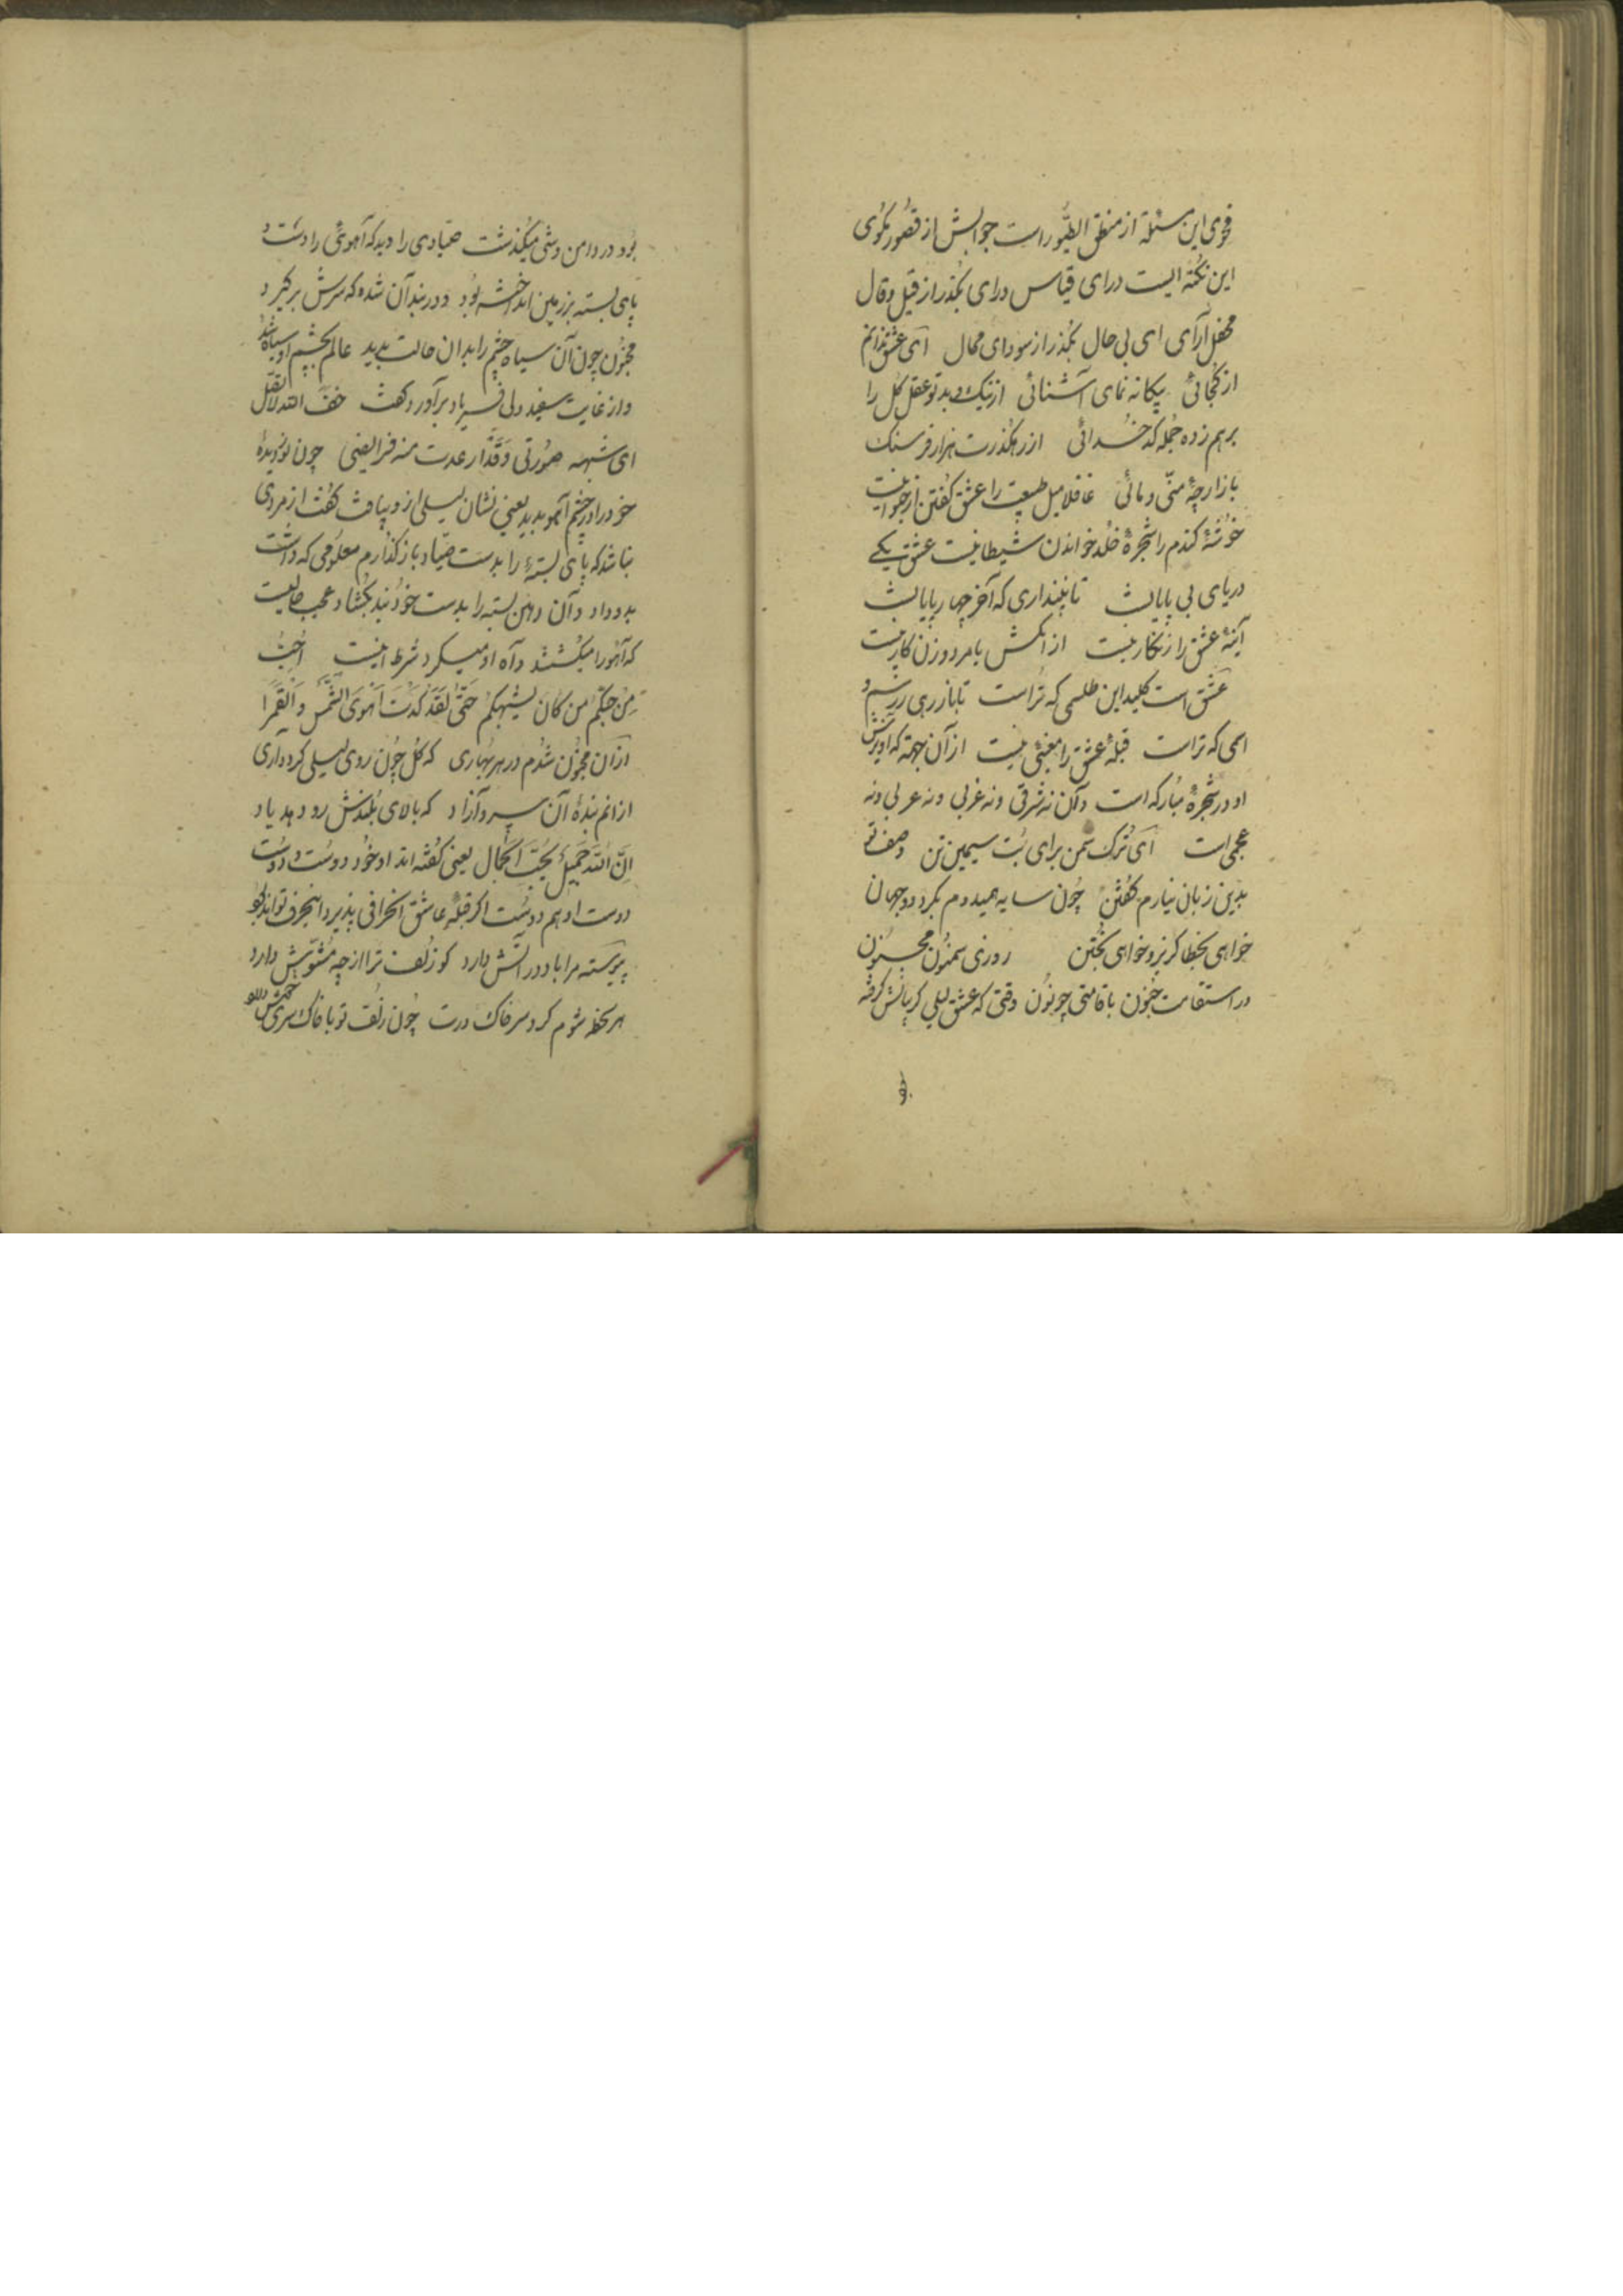 فحوی این مسئلة از منطق الطیور است جوابش از قصور مکوی
این نکته ایست درای قیاس درای بکذر از قیل و قال
محفل آرای ای بی حال بکذر از سودای محال ای عشق ندانم
از کجائی بیکانه نمای آشنائی از نیک و بد تو عقل کل را
برهم زده جمله کدخدائی از رهکذرت هزار فرسنک
بازارچهٔ منی و مائی غافلا میل طبیعت را عشق کفتن از حیوانیت
خوشهٔ کندم را شجرهٔ خلد خواندن شیطانیت عشق یکی
دریای بی پایانیست تا نپنداری که آخر چهار پایانیست
آینهٔ عشق را زنکار نیست از انکش با مرد و زن کار نیست
عشق است کلید این طلسمی که تراست تا باز رهی ز رسم و
اسمی که تراست قبلهٔ عشق را معینی نیست از آن جهة که آویزش
او در شجرهٔ مبارکه است و آن نه شرقی و نه غربی و نه عربی و نه
عجمی است ای ترک سمن برای بت سیمین تن وصف تو
بدین زبان نیارم کفتن چون سایه همیدوم بکرد دو جهان
خواهی بخطا کریز و خواهی بختن روزی سمنون مجنون
در استقامت جنون با قامتی چو نون وقتی که عشق لیلی کریبانش کرفته
بود در دامن دشتی میکذشت صیادی را دید که آهوئی را دست و
پای بسته بر زمین انداخته بود و در بند آن شده که سرش برکیرد
مجنون چون آن سیاه چشم را بدان حالت بدید عالم بچشم او سیاه شد
و از غایت سفید دلی فریاد برآورد و کفت خف الله لا تقتل
ای شبهه صورتی و قدار عدت منه فرایضی چون نور دیدهٔ
خود را در چشم آهو بدید یعنی نشان لیلی ازو بیافت کفت از مردی
نباشد که پای بستهٔ را بدست صیاد باز کذارم معلومی که داشت
بدو داد و آن دهن بسته را بدست خود بند بکشاد عجب حالیست
که آهو را میکشتند و آه او میکرد شرط اینست احب
من حبکم من کان یشبهکم حتی لقد کدت اهوی الشمس والقمرا
از آن مجنون شدم در هر بهاری که کل چون روی لیلی کرد داری
از انم بندهٔ آن سرو آزاد که بالای بلندش رو دهد یاد
ان الله جمیل یحب الجمال یعنی کفته اند او خود دوست و دوست
دوست او هم دوست اکر قبلهٔ عاشق انحرافی پذیرد این حرف تواند بود
پیوسته مرا باد در آتش دارد کو زلف ترا از چه مشوش دارد
هر لحظه شوم کرد سر خاک درت چون زلف تو با خاک سری خوش دارد